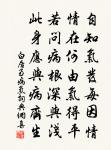 自知氣發每因情
情在何由氣得平
若問病根深與淺
此身應與病齊生
白居易病氣